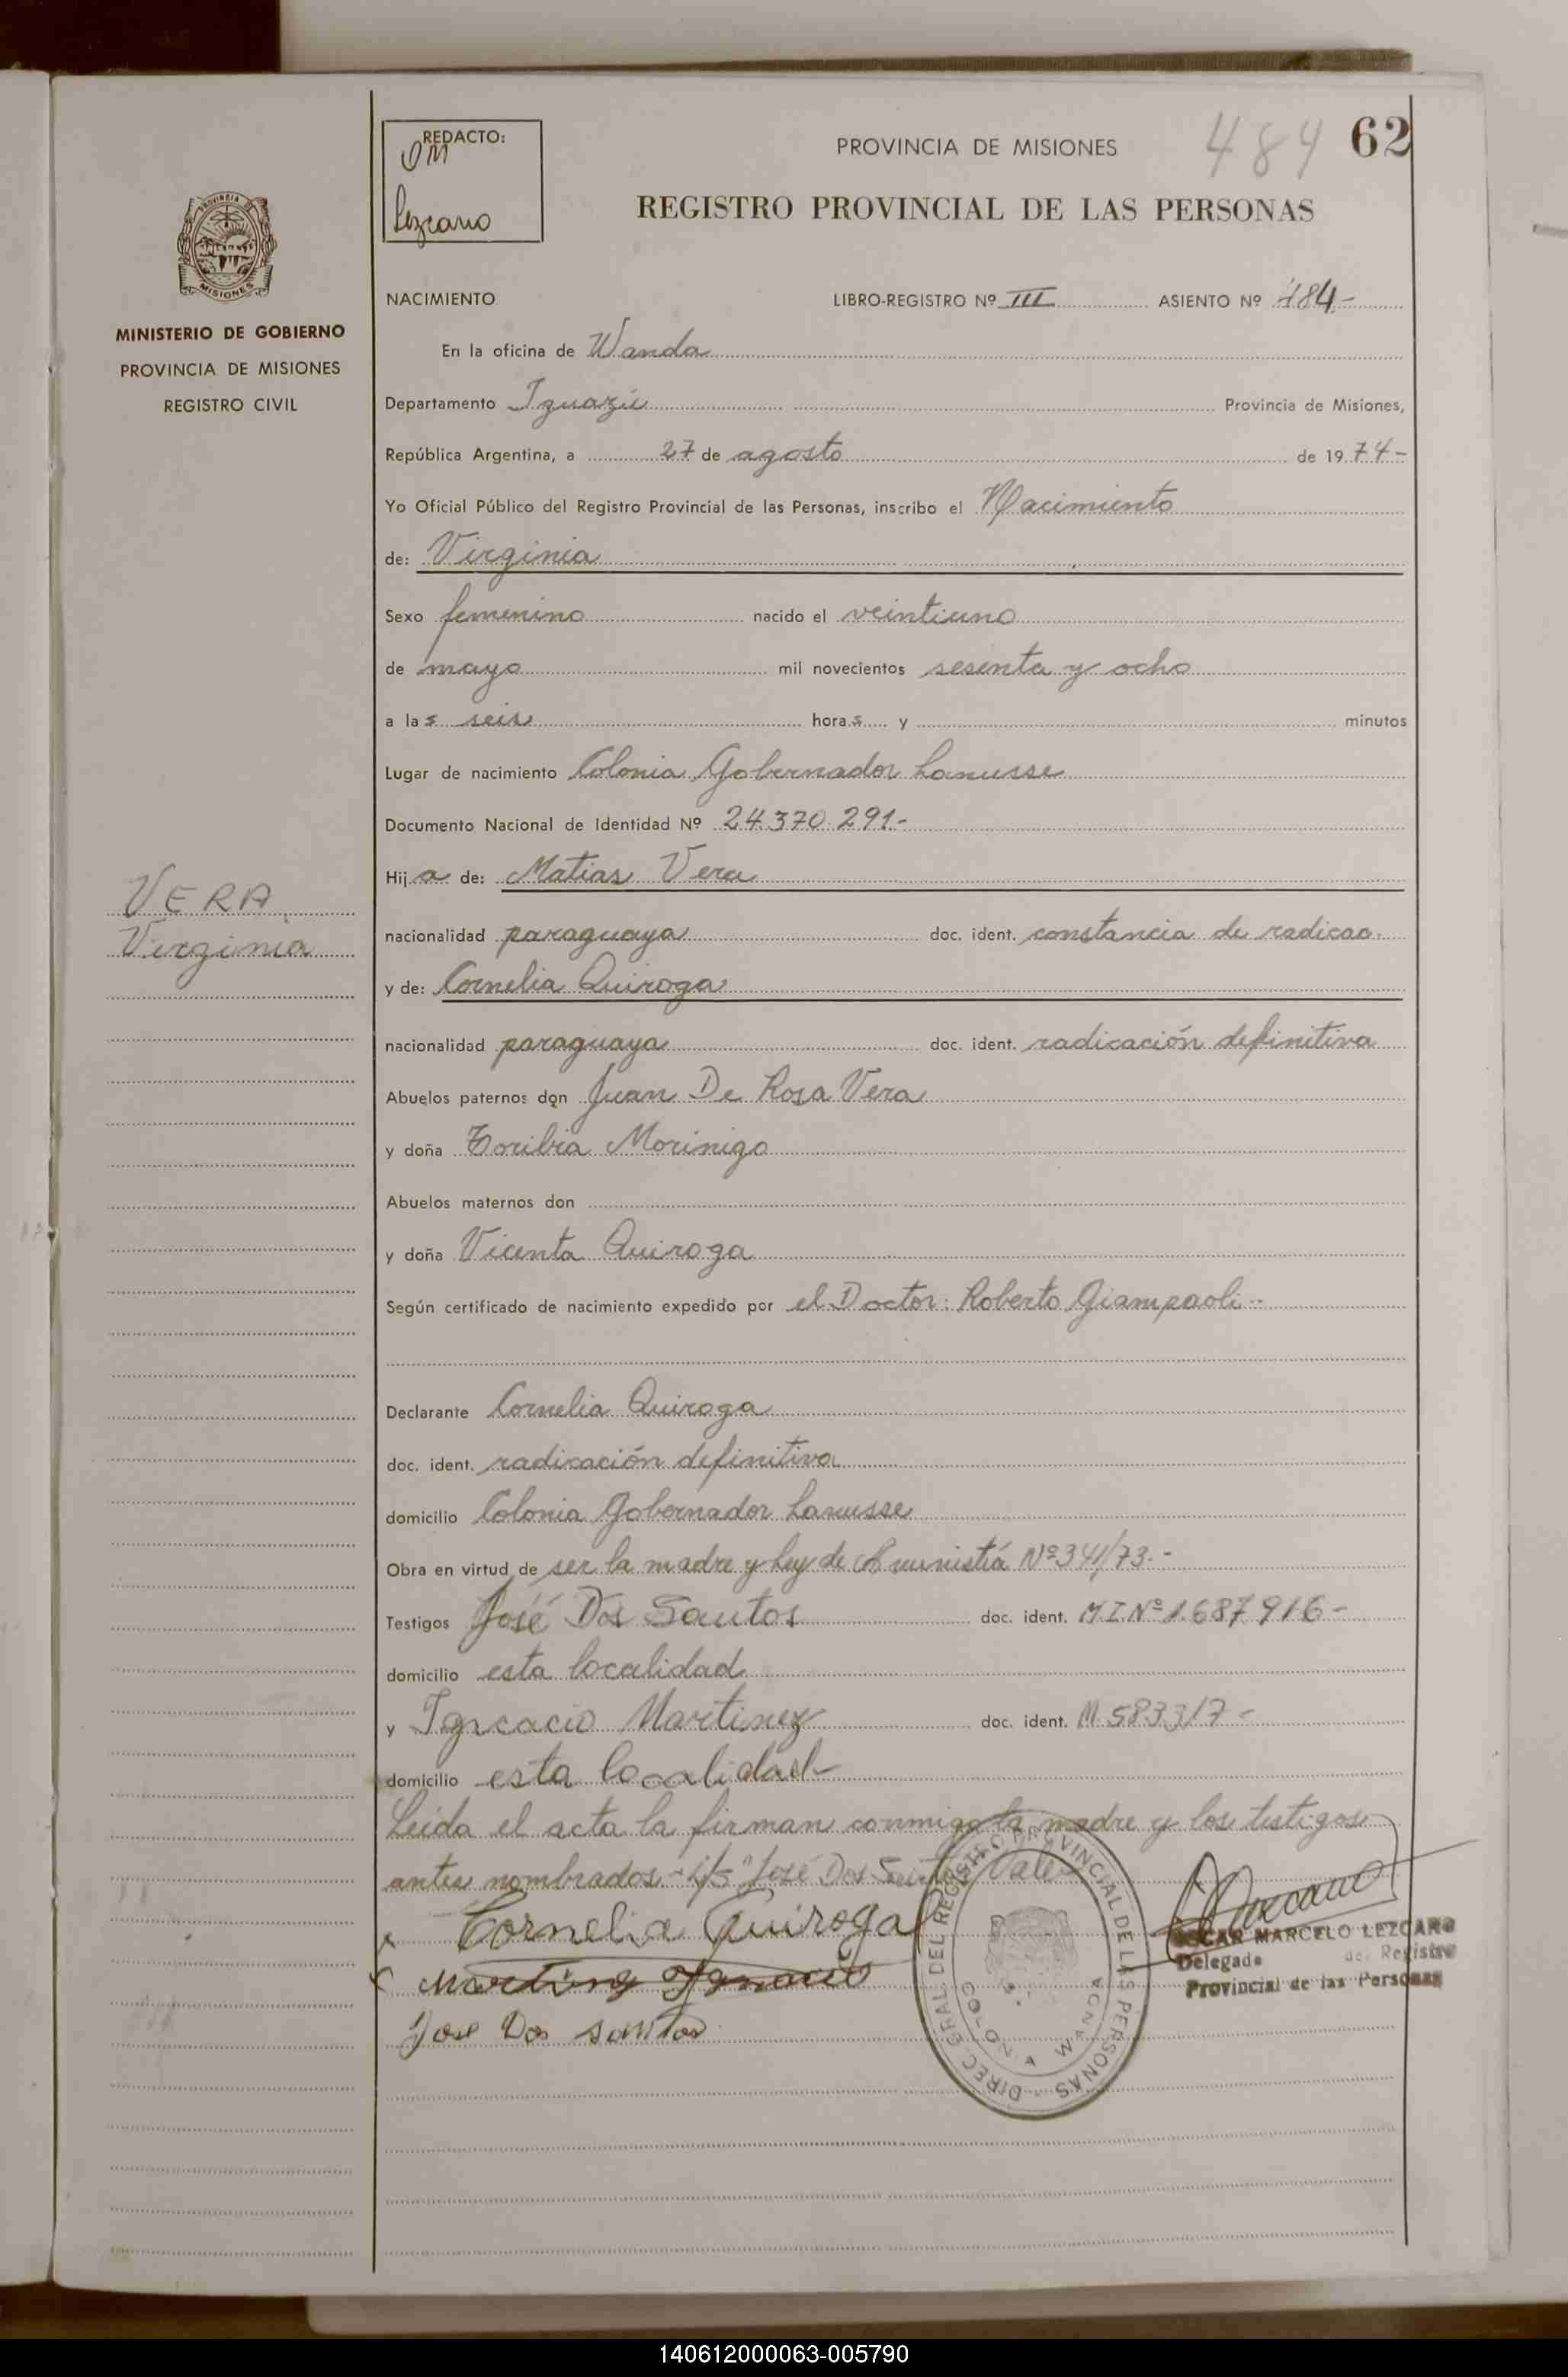 REDACTO:
OM
Lezcano
PROVINCIA DE MISIONES
484
62
REGISTRO PROVINCIAL DE LAS PERSONAS
PROVINCIA DE
MISIONES
MINISTERIO DE GOBIERNO
PROVINCIA DE MISIONES
REGISTRO CIVIL
NACIMIENTO LIBRO-REGISTRO Nº III ASIENTO Nº 484-
En la oficina de Wanda
Departamento Iguazú Provincia de Misiones,
República Argentina, a 27 de agosto de 1974-
Yo Oficial Público del Registro Provincial de las Personas, inscribo el Nacimiento
de: Virginia
Sexo femenino nacido el veintiuno
de mayo mil novecientos sesenta y ocho
a las seis horas y minutos
Lugar de nacimiento Colonia Gobernador Lanusse
Documento Nacional de Identidad Nº 24.370.291-
Hija de: Matias Vera
VERA
Virginia
nacionalidad paraguaya doc. ident. constancia de radicac.
y de: Cornelia Quiroga
nacionalidad paraguaya doc. ident. radicación definitiva
Abuelos paternos don Juan De Rosa Vera
y doña Toribia Morinigo
Abuelos maternos don
y doña Vicenta Quiroga
Según certificado de nacimiento expedido por el Doctor: Roberto Giampaoli--
Declarante Cornelia Quiroga
doc. ident. radicación definitiva
domicilio Colonia Gobernador Lanusse
Obra en virtud de ser la madre y Ley de Amunistiá Nº 341/73.-
Testigos José Dos Santos doc. ident. M.I.Nº 1.687.916-
domicilio esta localidad
y Ignacio Martinez doc. ident. M 583317-
domicilio esta localidad-
Leida el acta la firman conmigo la madre y los testigos
antes nombrados - "José Dos Santos" Vale
Cornelia Quiroga
Martinez Ygnacio
Jose Dos santos
DIREC. GRAL. DEL REGISTRO PROVINCIAL DE LAS PERSONAS
COLONIA WANDA
OSCAR MARCELO LEZCANO
Delegado de Registro
Provincial de las Personas
140612000063-005790